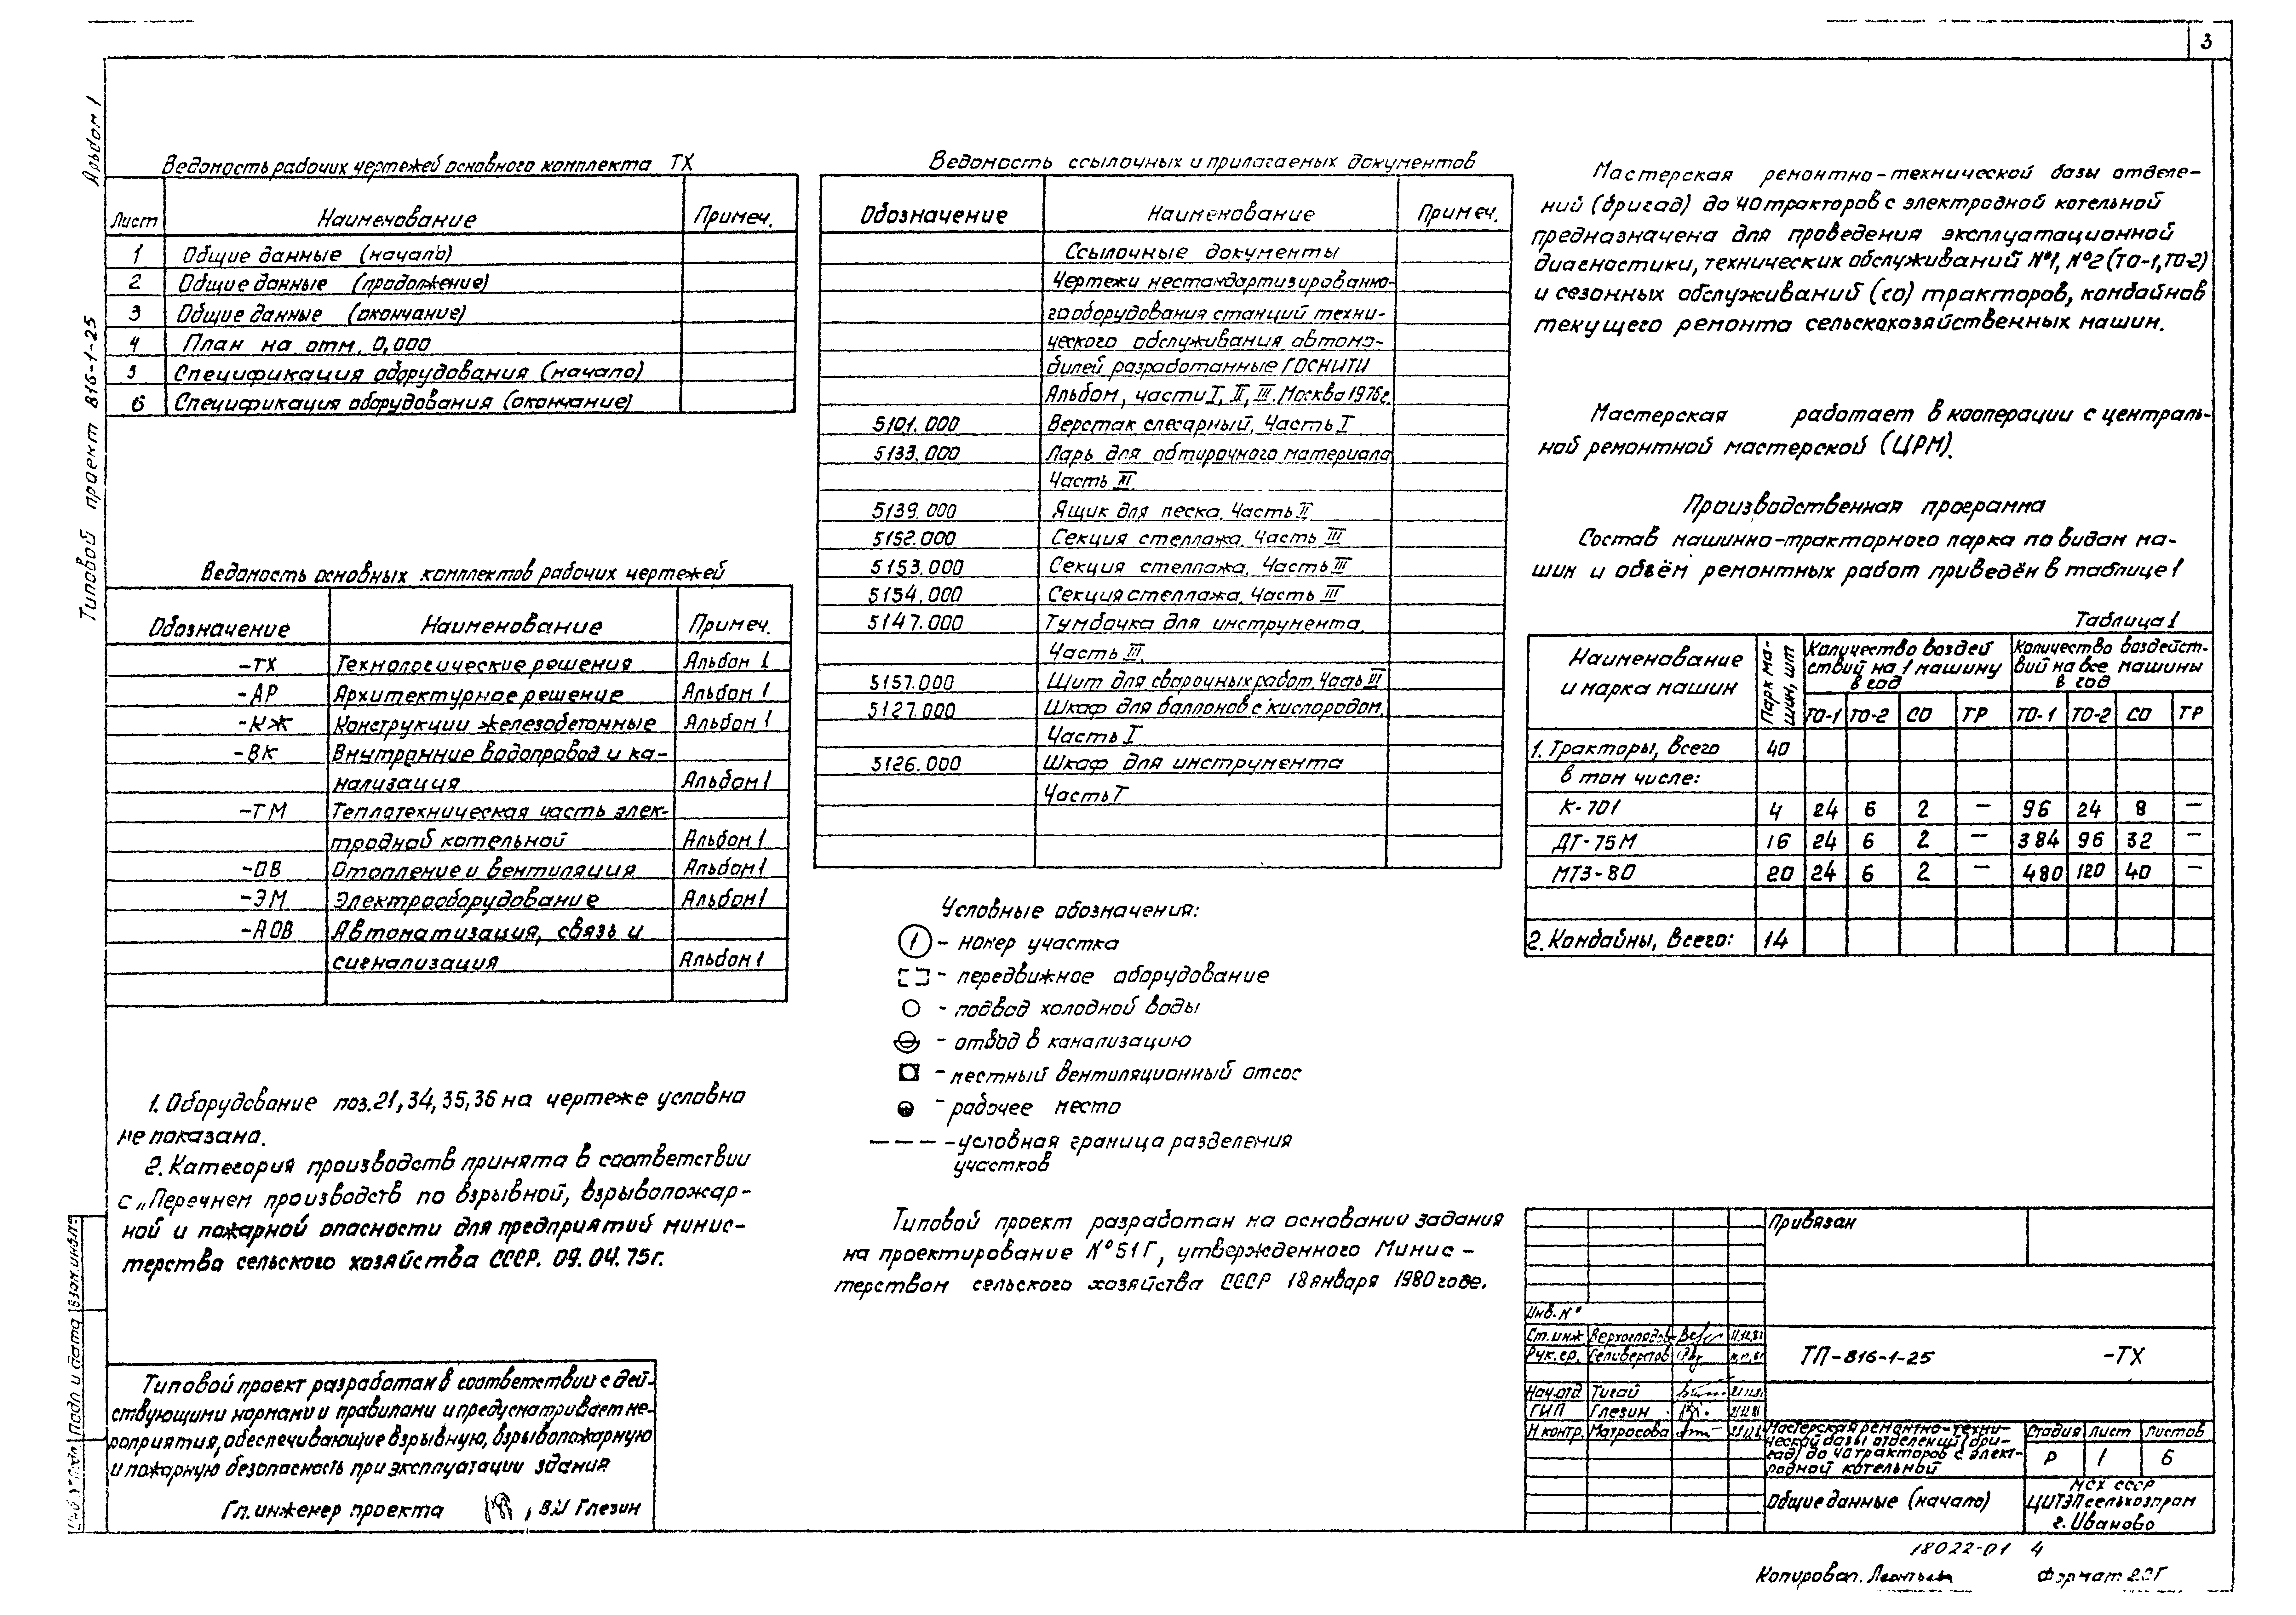 3
Альбом 1
Типовой проект 816-1-25
Ведомость рабочих чертежей основного комплекта ТХ
Лист Наименование Примеч.
1 Общие данные (начало)
2 Общие данные (продолжение)
3 Общие данные (окончание)
4 План на отм. 0,000
5 Спецификация оборудования (начало)
6 Спецификация оборудования (окончание)
Ведомость основных комплектов рабочих чертежей
Обозначение Наименование Примеч.
-ТХ Технологические решения Альбом 1
-АР Архитектурное решение Альбом 1
-КЖ Конструкции железобетонные Альбом 1
-ВК Внутренние водопровод и ка-
нализация Альбом 1
-ТМ Теплотехническая часть элек-
тродной котельной Альбом 1
-ОВ Отопление и вентиляция Альбом 1
-ЭМ Электрооборудование Альбом 1
-АОВ Автоматизация, связь и
сигнализация Альбом 1
1. Оборудование поз. 21, 34, 35, 36 на чертеже условно
не показано.
2. Категория производств принята в соответствии
с „Перечнем производств по взрывной, взрывопожар-
ной и пожарной опасности для предприятий минис-
терства сельского хозяйства СССР. 09. 04. 75г.
Типовой проект разработан в соответствии с дей-
ствующими нормами и правилами и предусматривает ме-
роприятия, обеспечивающие взрывную, взрывопожарную
и пожарную безопасность при эксплуатации здания
Гл. инженер проекта , В.И Глезин
Ведомость ссылочных и прилагаемых документов
Обозначение Наименование Примеч.
Ссылочные документы
Чертежи нестандартизированно-
го оборудования станций техни-
ческого обслуживания автомо-
билей разработанные ГОСНИТИ
Альбом, части I, II, III. Москва 1976г.
5101. 000 Верстак слесарный. Часть I
5133. 000 Ларь для обтирочного материала
Часть III
5139. 000 Ящик для песка. Часть II
5152. 000 Секция стеллажа. Часть III
5153. 000 Секция стеллажа. Часть III
5154. 000 Секция стеллажа. Часть III
5147. 000 Тумбочка для инструмента.
Часть III.
5157. 000 Щит для сварочных работ. Часть III
5127. 000 Шкаф для баллонов с кислородом.
Часть I
5126. 000 Шкаф для инструмента
Часть I
Условные обозначения:
1 - номер участка
- передвижное оборудование
- подвод холодной воды
- отвод в канализацию
- местный вентиляционный отсос
- рабочее место
- условная граница разделения
участков
Типовой проект разработан на основании задания
на проектирование №51Г, утвержденного Минис-
терством сельского хозяйства СССР 18 января 1980 годе.
Мастерская ремонтно-технической базы отделе-
ний (бригад) до 40 тракторов с электродной котельной
предназначена для проведения эксплуатационной
диагностики, технических обслуживаний №1, №2 (ТО-1, ТО-2)
и сезонных обслуживаний (со) тракторов, комбайнов
текущего ремонта сельскохозяйственных машин.
Мастерская работает в кооперации с централь-
ной ремонтной мастерской (ЦРМ).
Производственная программа
Состав машинно-тракторного парка по видам ма-
шин и объём ремонтных работ приведён в таблице 1
Таблица 1
Наименование и марка машин Парк ма-шин, шт Количество воздей ствий на 1 машину в год Количество воздейст-вий на все машины в год
ТО-1 ТО-2 СО ТР ТО-1 ТО-2 СО ТР
1. Тракторы, всего 40
в том числе:
К-701 4 24 6 2 — 96 24 8 —
ДТ-75М 16 24 6 2 — 384 96 32 —
МТЗ-80 20 24 6 2 — 480 120 40 —
2. Комбайны, всего: 14
Привязан
Инв. №
Ст. инж. Верхоглядов
Рук. гр. Селиверстов
Нач. отд Тигай
ГИП Глезин
Н контр. Матросова
ТП-816-1-25 -ТХ
Мастерская ремонтно-техни-
ческой базы отделений (бри-
гад) до 40 тракторов с элект-
родной котельной
Стадия Лист Листов
Р 1 6
Общие данные (начало)
МСХ СССР
ЦИТЭПсельхозпром
г. Иваново
Инв. № подл. Подп и дата Взам. инв №
18022-01 4
Копировал. Леонтьева Формат 22Г